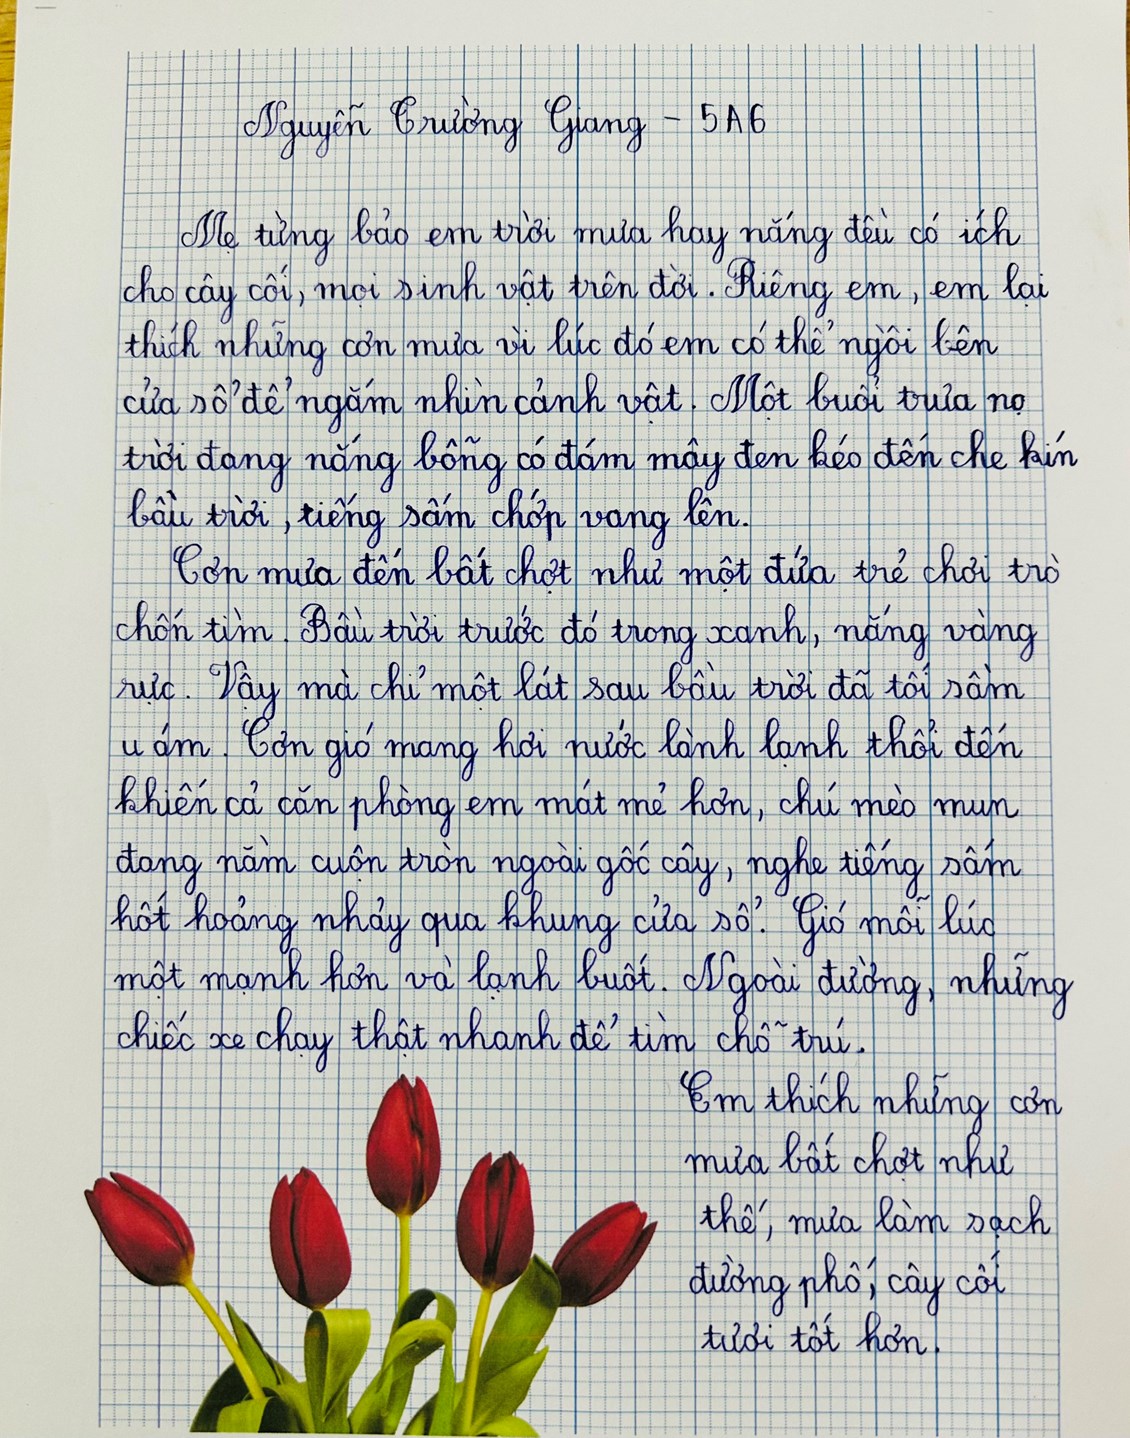 Nguyễn Trường Giang - 5A6
Mẹ từng bảo em trời mưa hay nắng đều có ích
cho cây cối, mọi sinh vật trên đời. Riêng em, em lại
thích những cơn mưa vì lúc đó em có thể ngồi bên
cửa sổ để ngắm nhìn cảnh vật. Một buổi trưa nọ
trời đang nắng bỗng có đám mây đen kéo đến che kín
bầu trời, tiếng sấm chớp vang lên.
Cơn mưa đến bất chợt như một đứa trẻ chơi trò
chốn tìm. Bầu trời trước đó trong xanh, nắng vàng
rực. Vậy mà chỉ một lát sau bầu trời đã tối sầm
u ám. Cơn gió mang hơi nước lành lạnh thổi đến
khiến cả căn phòng em mát mẻ hơn, chú mèo mun
đang nằm cuộn tròn ngoài gốc cây, nghe tiếng sấm
hốt hoảng nhảy qua khung cửa sổ. Gió mỗi lúc
một mạnh hơn và lạnh buốt. Ngoài đường, những
chiếc xe chạy thật nhanh để tìm chỗ trú.
Em thích những cơn
mưa bất chợt như
thế, mưa làm sạch
đường phố, cây cối
tươi tốt hơn.